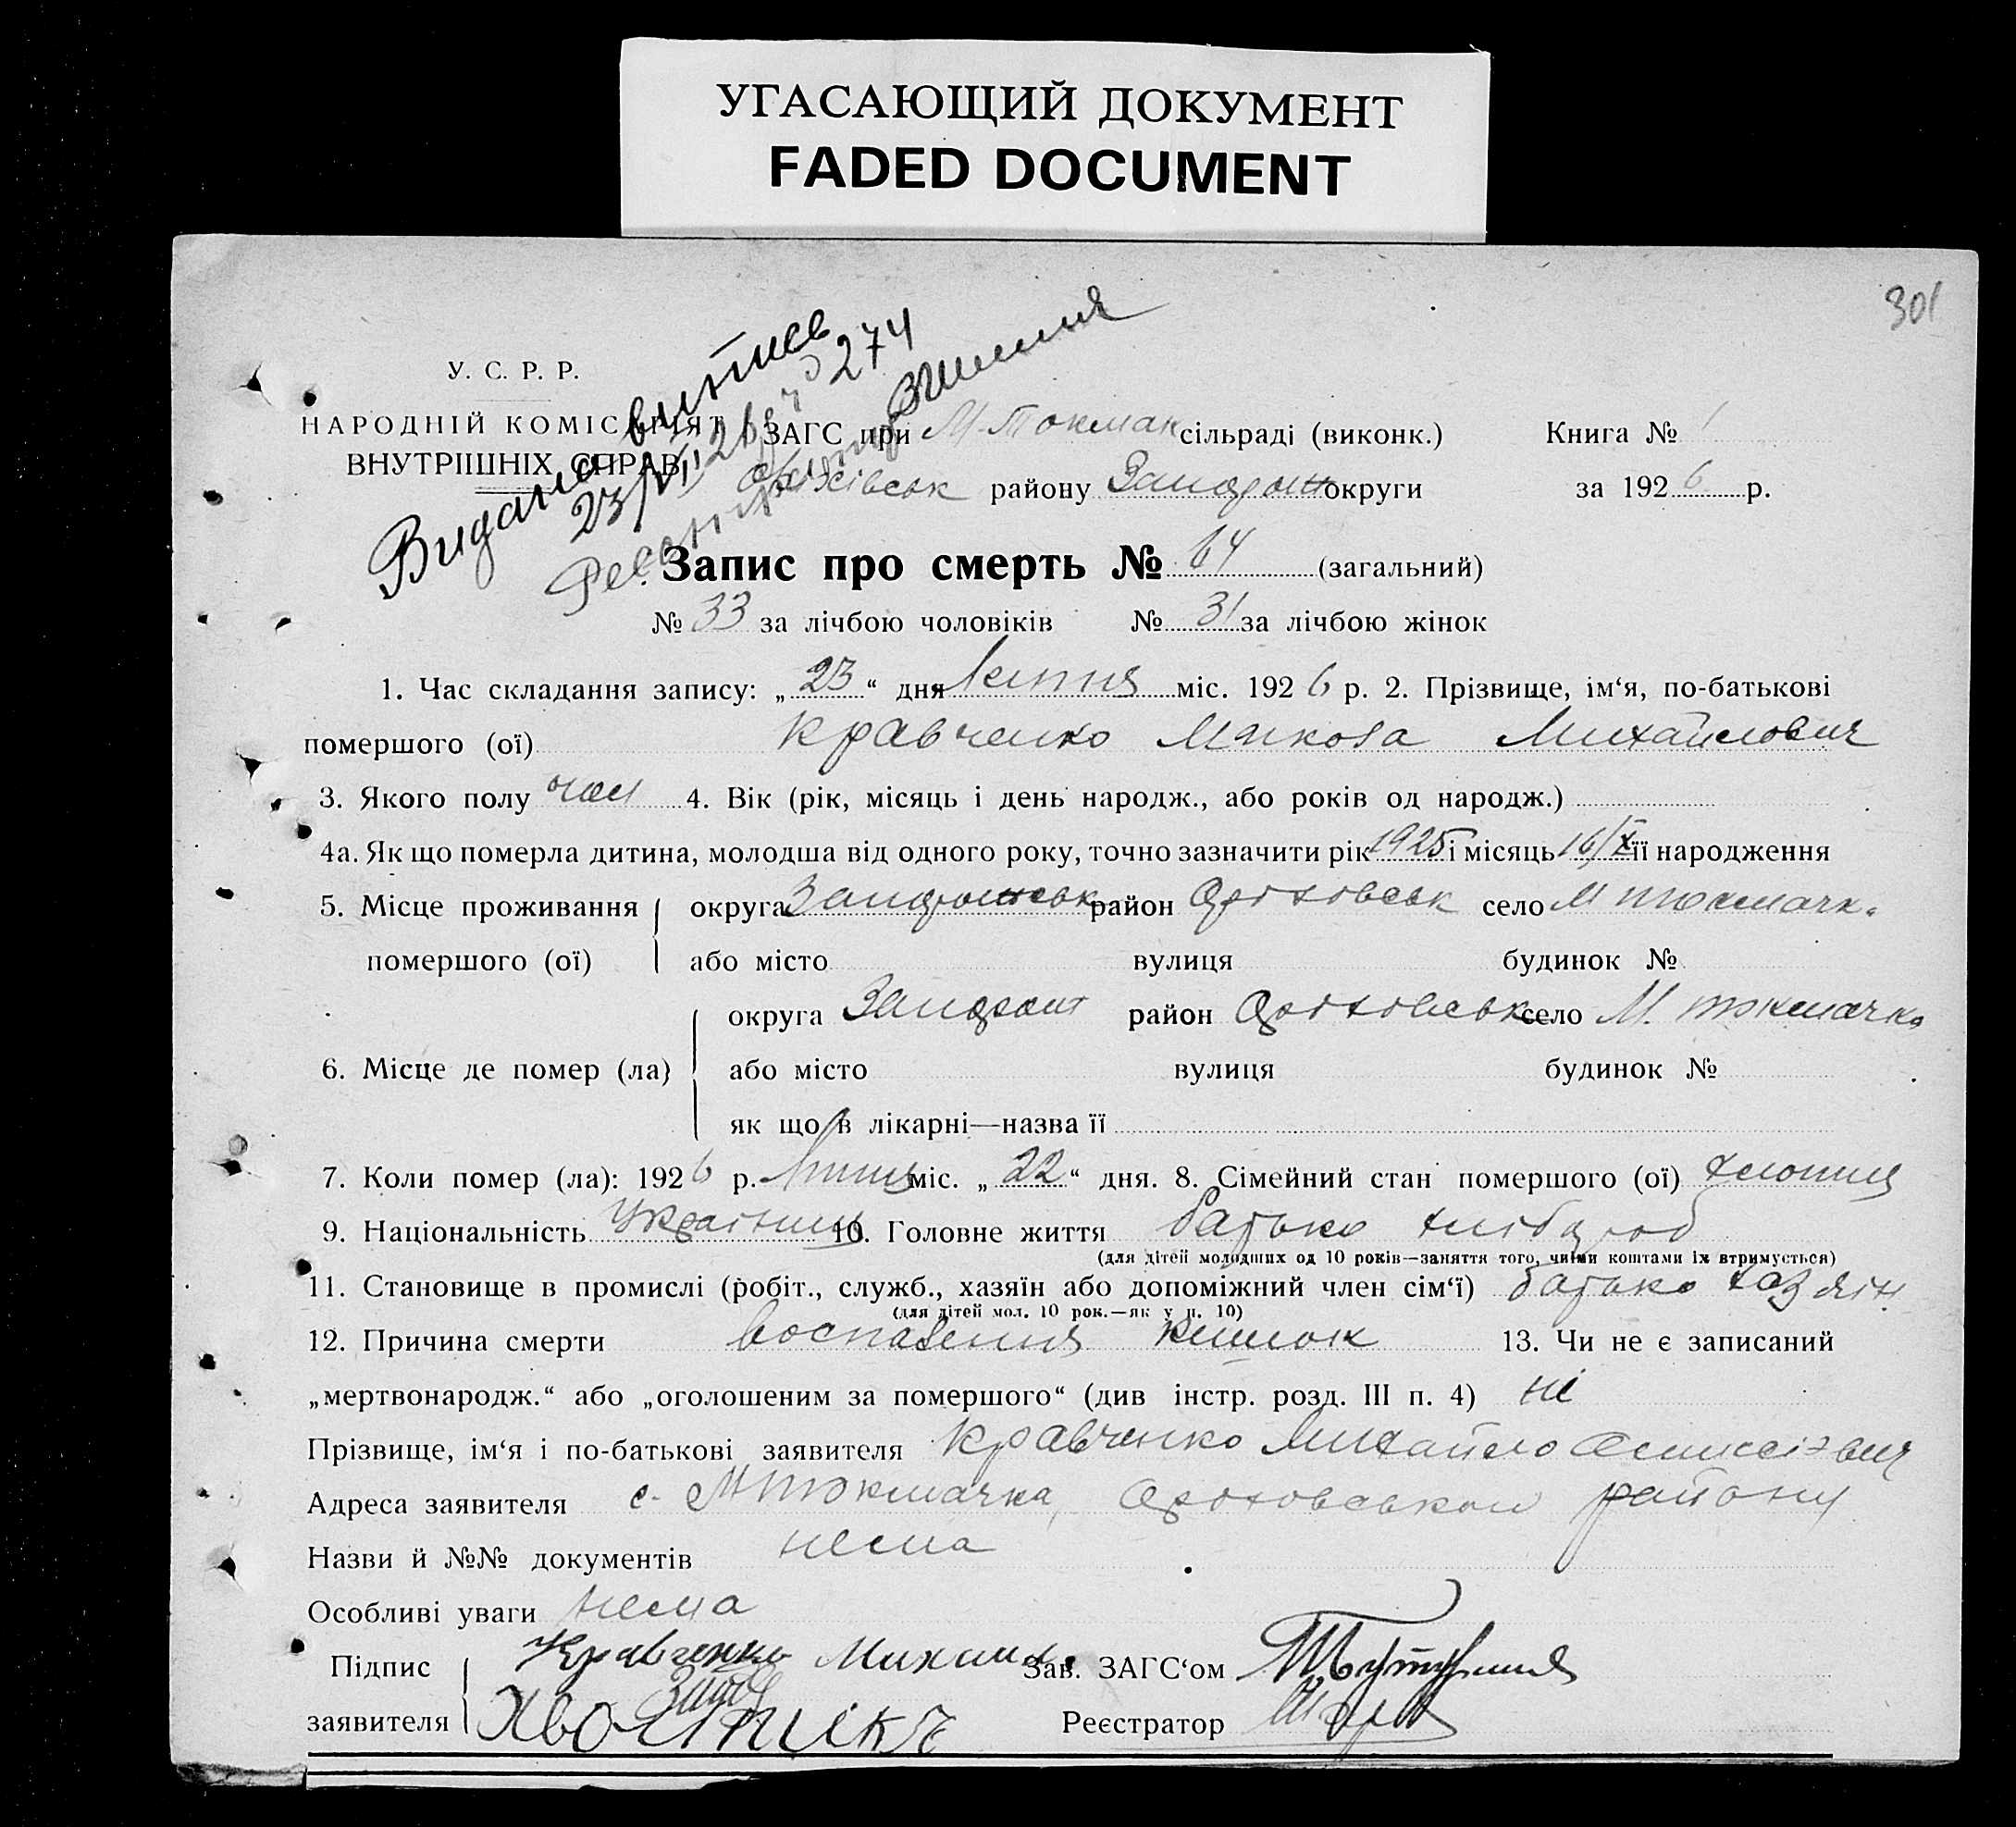 УГАСАЮЩИЙ ДОКУМЕНТ
FADED DOCUMENT
301
У. С. Р. Р.
НАРОДНІЙ КОМІСАРІЯТ
ВНУТРІШНІХ СПРАВ
Видано витяг
23/VII 26 274
ЗАГС при М. Токмак сільраді (виконк.) Книга № 1
району Запорож округи за 1926 р.
Запис про смерть № 64 (загальний)
№ 33 за лічбою чоловіків № 31 за лічбою жінок
1. Час складання запису: „23“ дня Липня міс. 1926 р. 2. Прізвище, ім‘я, по-батькові
помершого (ої) Кравченко Микола Михайлович
3. Якого полу чол 4. Вік (рік, місяць і день народж., або років од народж.)
4а. Як що померла дитина, молодша від одного року, точно зазначити рік 1925 і місяць 16/X її народження
5. Місце проживання округа район Оріховськ село М Токмачк.
помершого (ої) або місто вулиця будинок №
округа Запорож район Оріховськ село М. Токмачка
6. Місце де помер (ла) або місто вулиця будинок №
як що в лікарні—назва її
7. Коли помер (ла): 1926 р. Липня міс. „22“ дня. 8. Сімейний стан помершого (ої) хлопець
9. Національність Українець 10. Головне життя батько хлібороб
(для дітей молодших од 10 років—заняття того, чиїми коштами їх втримується)
11. Становище в промислі (робіт., служб., хазяїн або допоміжний член сім‘ї) батько хазяїн
(для дітей мол. 10 рок.—як у п. 10)
12. Причина смерти воспаления кишок 13. Чи не є записаний
„мертвонародж.“ або „оголошеним за помершого“ (див інстр. розд. III п. 4) ні
Прізвище, ім‘я і по-батькові заявителя Кравченко Михайло
Адреса заявителя с. М Токмачка, району
Назви й №№ документів нема
Особливі уваги нема
Підпис Кравченко Михаил Зав. ЗАГС‘ом
заявителя Реєстратор